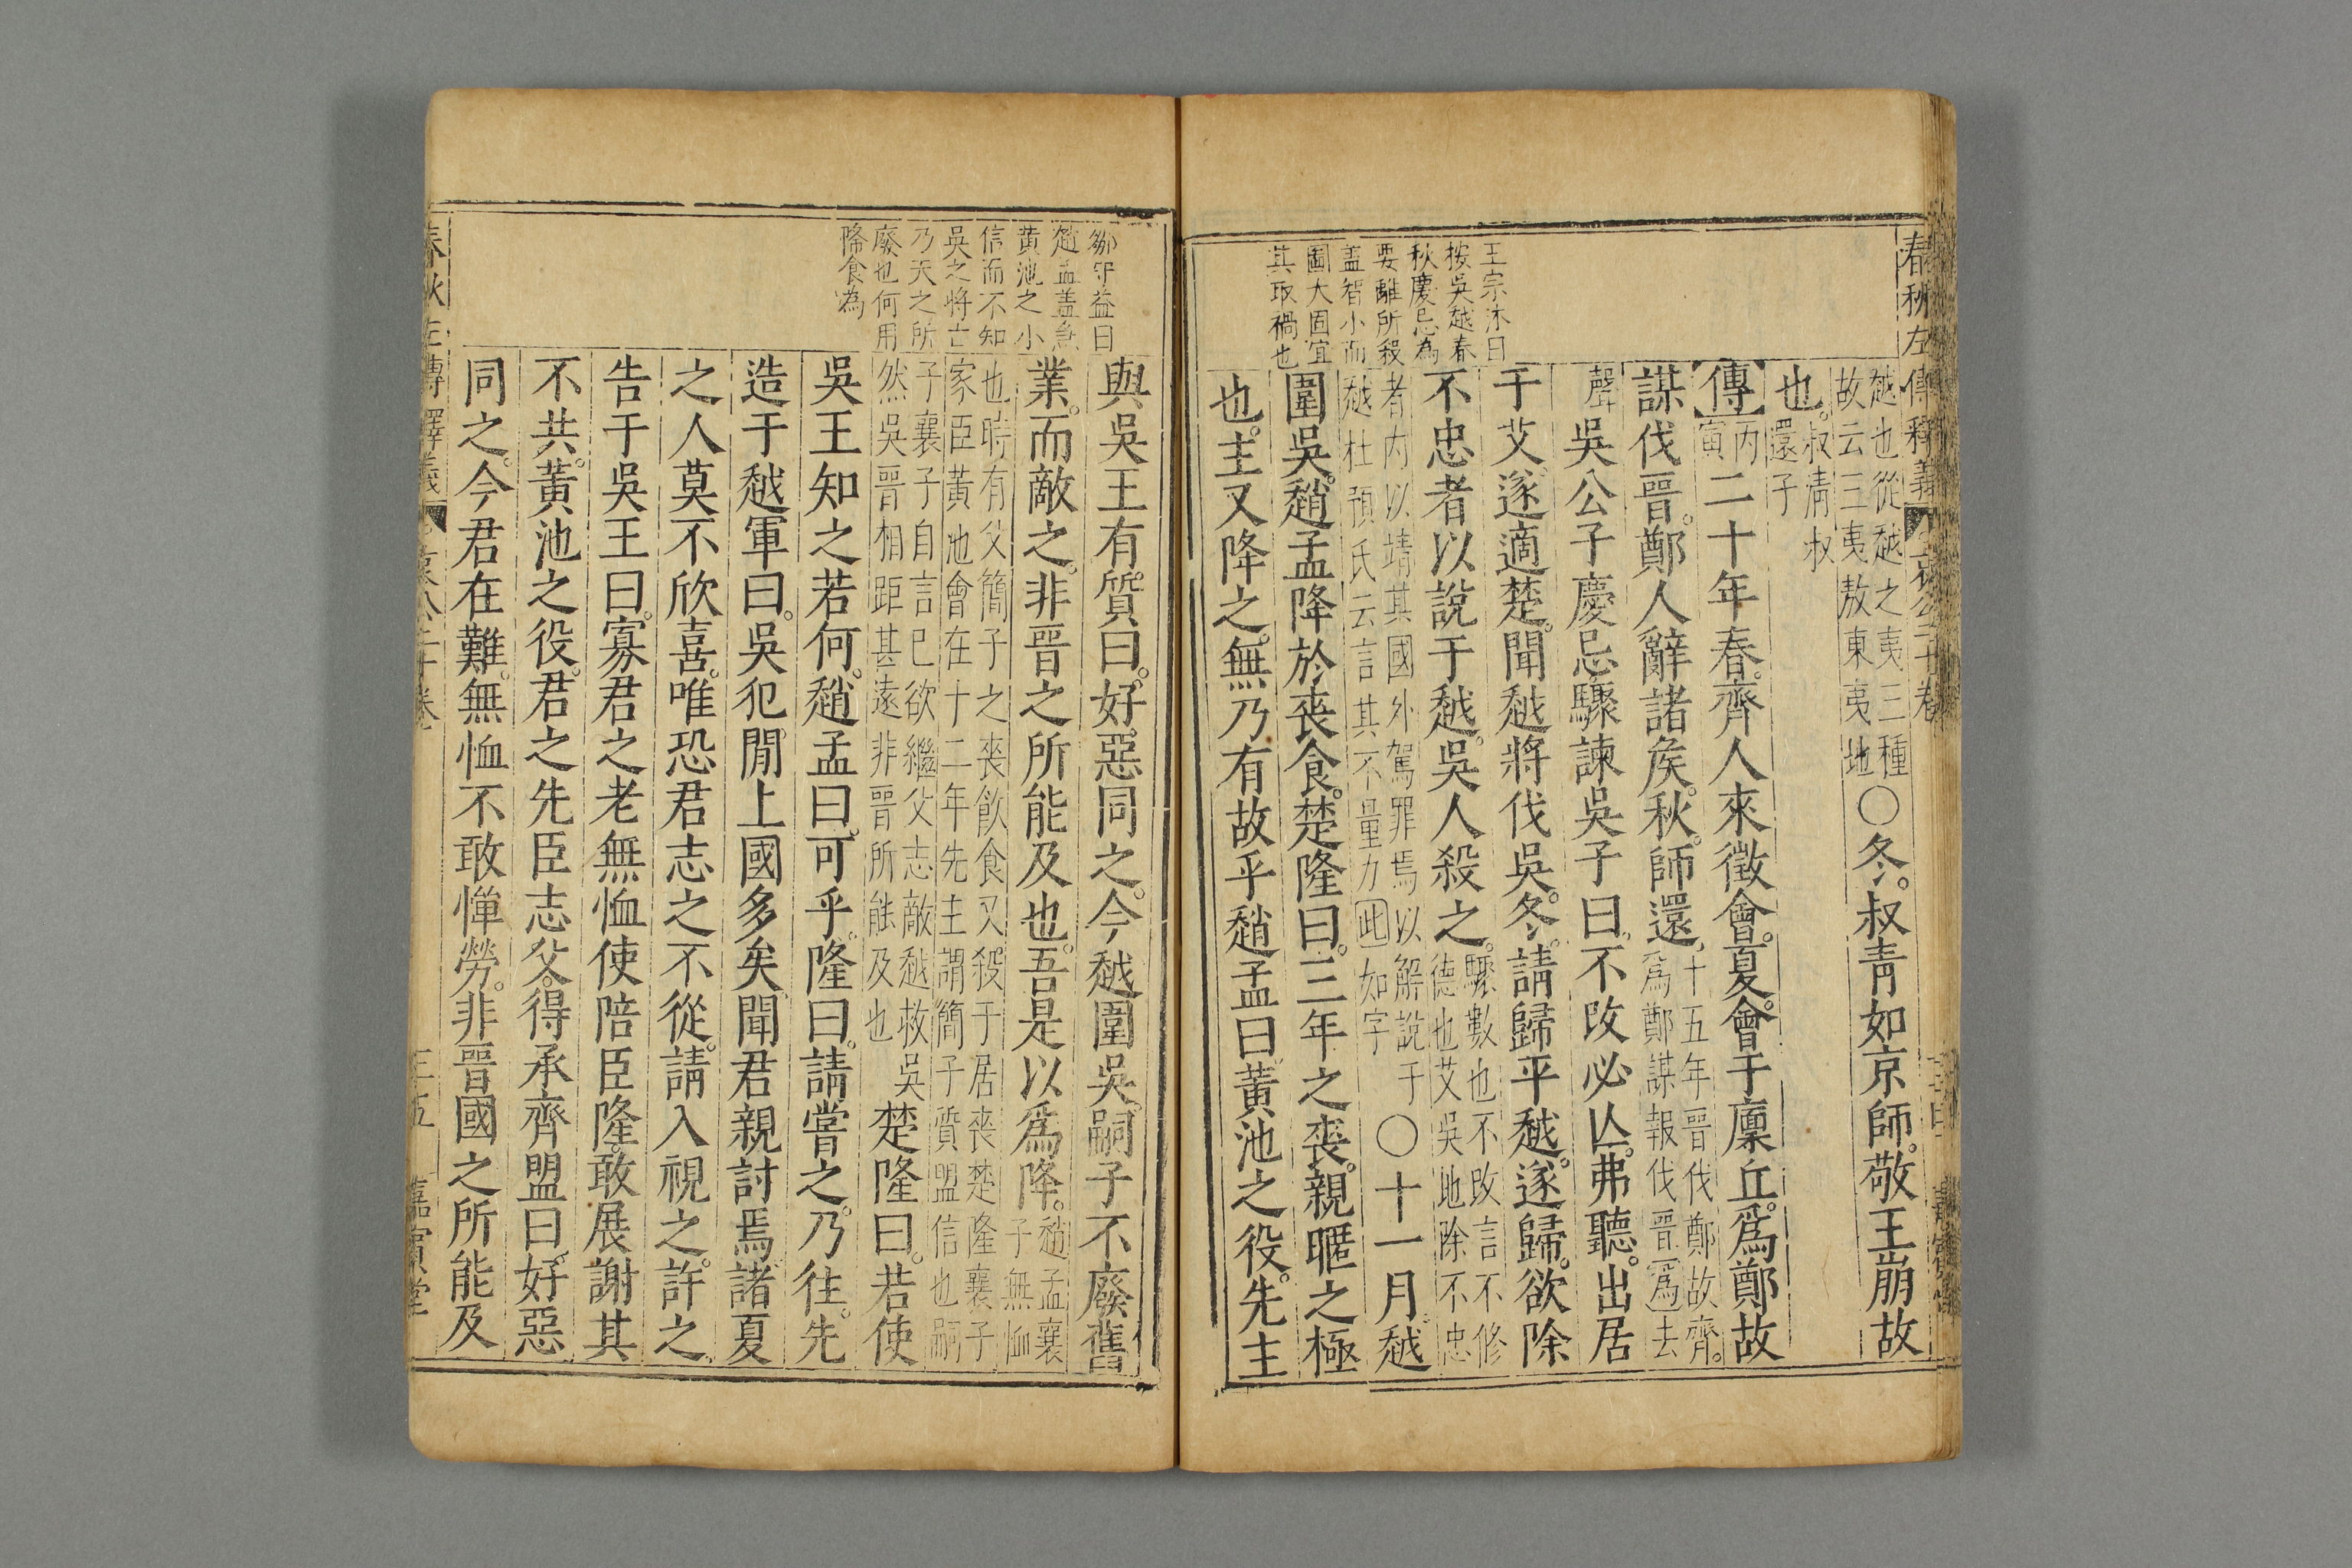 春秋左傳釋義
哀公二十卷
王宗沐曰
按吳越春
秋慶忌為
要離所殺
蓋智小而
圖大固宜
其取禍也
越也從越之夷三種
故云三夷敖東夷地
○冬叔青如京師敬王崩故
也
叔清叔
還子
傳
丙
寅
二十年春齊人來徵會夏會于廩丘爲鄭故
謀伐晉鄭人辭諸侯秋師還
十五年晉伐鄭故齊
爲鄭謀報伐晉爲去
聲
吳公子慶忌驟諫吳子曰不改必亾弗聽出居
于艾遂適楚聞越將伐吳冬請歸平越遂歸欲除
不忠者以說于越吳人殺之
驟數也不改言不修
德也艾吳地除不忠
者內以靖其國外駕罪焉以解說于
越杜預氏云言其不量力此如字
○十一月越
圍吳趙孟降於喪食楚隆曰三年之喪親暱之極
也主又降之無乃有故乎趙孟曰黃池之役先主
鄒守益曰
趙孟蓋急
黃池之小
信而不知
吳之將亡
乃天之所
廢也何用
降食為
與吳王有質曰好惡同之今越圍吳嗣子不廢舊
業而敵之非晉之所能及也吾是以爲降
趙孟襄
子無恤
也時有父簡子之喪飲食又殺于居喪楚隆襄子
家臣黃池會在十二年先主謂簡子質盟信也嗣
子襄子自言已欲繼父志敵越救吳
然吳晉相距甚遠非晉所能及也
楚隆曰若使
吳王知之若何趙孟曰可乎隆曰請嘗之乃往先
造于越軍曰吳犯閒上國多矣聞君親討焉諸夏
之人莫不欣喜唯恐君志之不從請入視之許之
告于吳王曰寡君之老無恤使陪臣隆敢展謝其
不共黃池之役君之先臣志父得承齊盟曰好惡
同之今君在難無恤不敢憚勞非晉國之所能及
春秋左傳釋義
哀公二十卷
三五
嘉賓堂